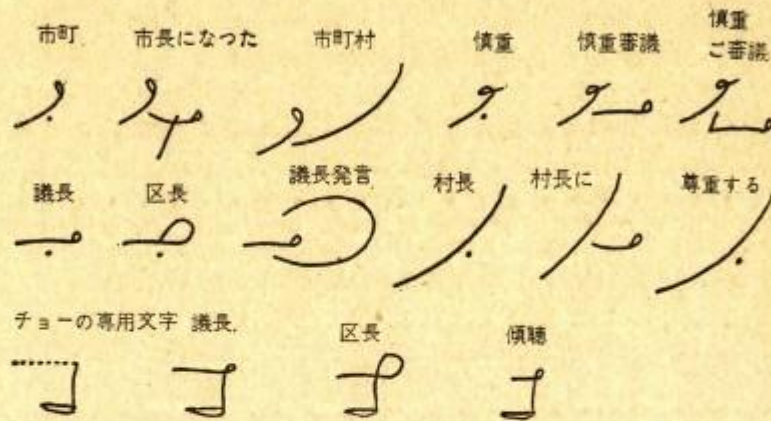 市町 市長になった 市町村 慎重 慎重審議 慎重
ご審議
議長 区長 議長発言 村長 村長に 尊重する
チョーの専用文字 議長. 区長 傾聴